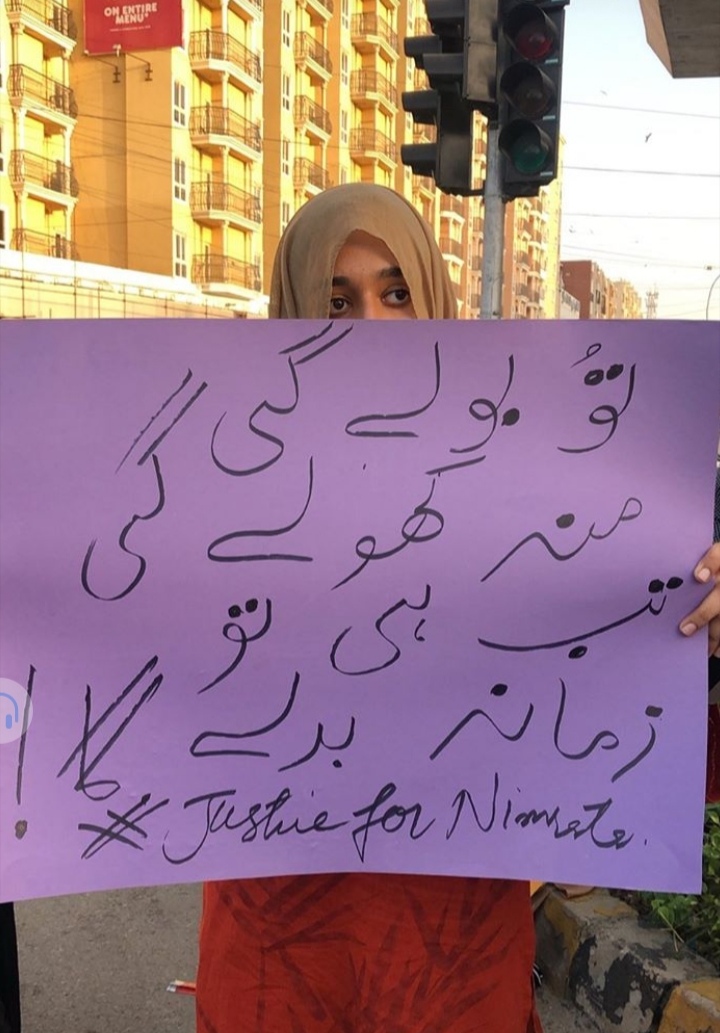 ON ENTIRE
MENU*
تُو بولے گی
منہ کھولے گی
تب ہی تو
زمانہ بدلے گا!
# Justice for Nimrata.